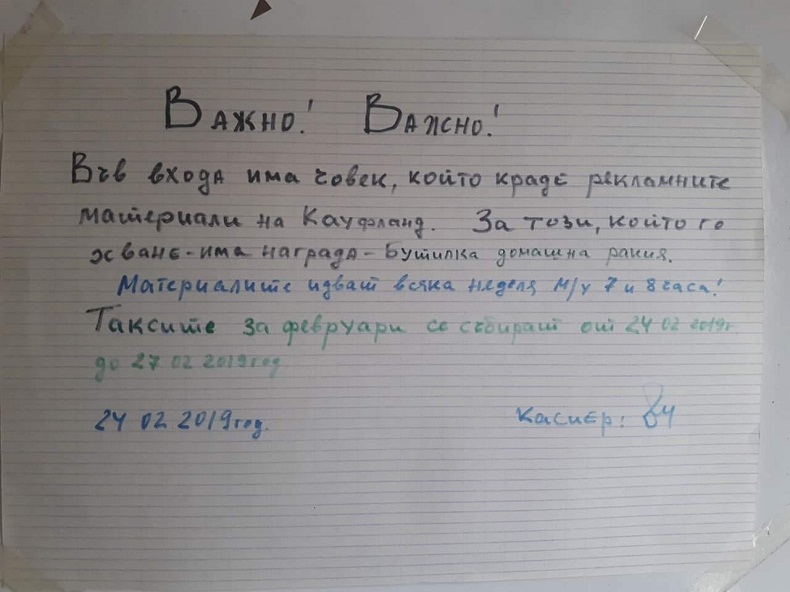 Важно! Важно!
Във входа има човек, който краде рекламните
материали на Кауфланд. За този, който го
хване - има награда - Бутилка домашна ракия.
Материалите идват всяка неделя м/у 7 и 8 часа!
Таксите за февруари се събират от 24 02 2019г.
до 27 02 2019год
24 02 2019год.
Касиер: